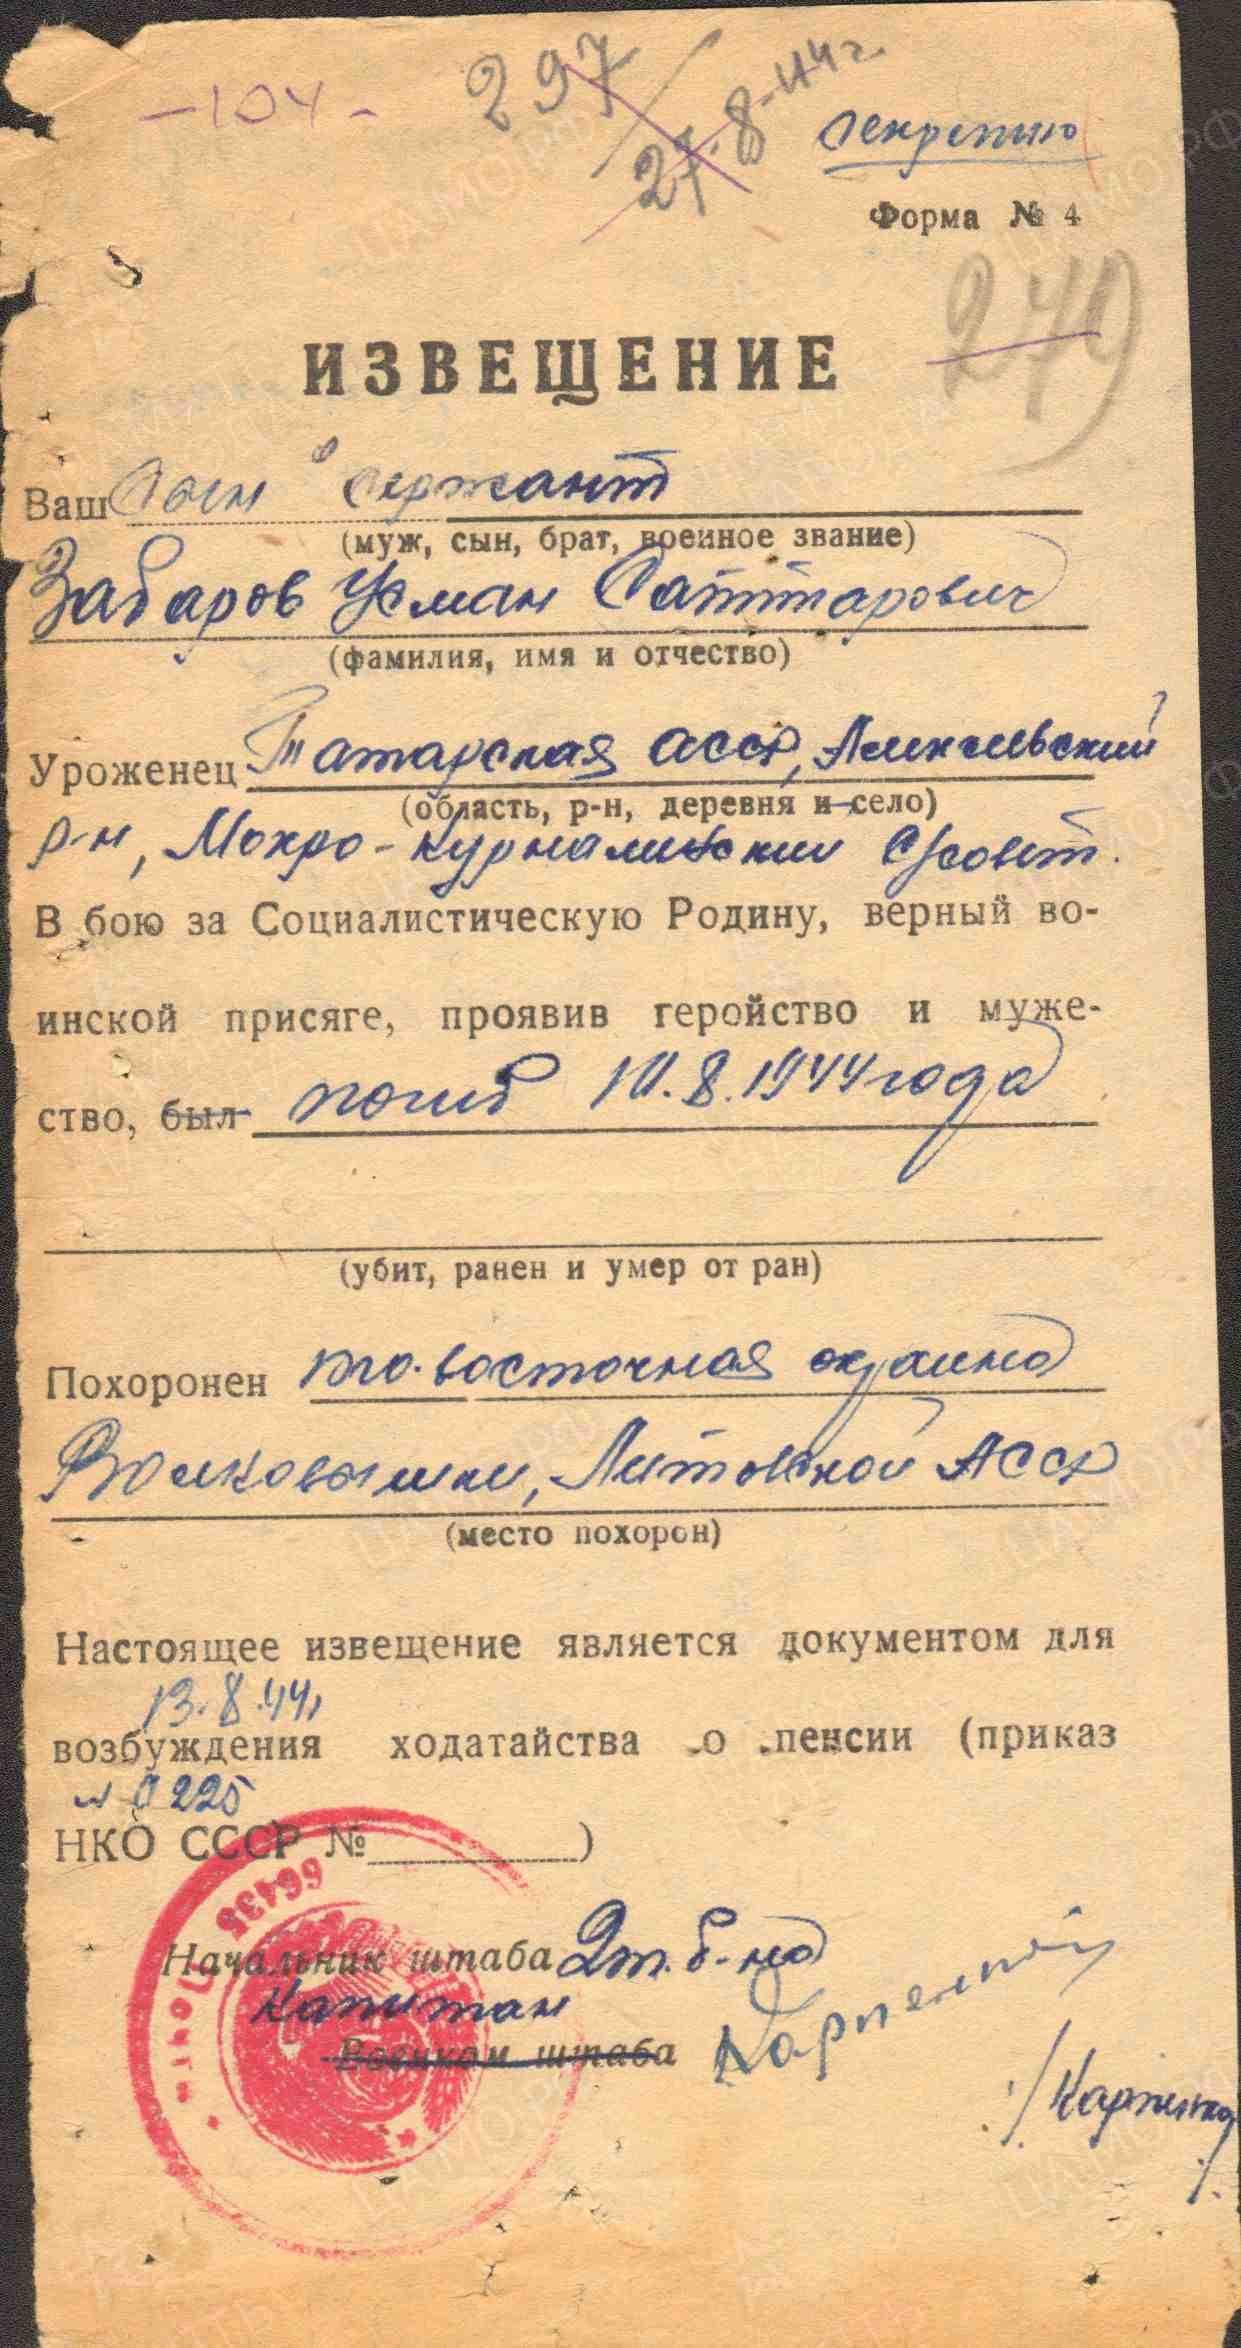 -104-
297
27.8-44 г.
секретно
Форма № 4
279
ИЗВЕЩЕНИЕ
Ваш сын сержант
(муж, сын, брат, военное звание)
Забаров Усман Саттарович
(фамилия, имя и отчество)
Уроженец Татарская АССР,
(область, р-н, деревня и село)
р-н, Мокро-Курналийский с/совет.
В бою за Социалистическую Родину, верный во-
инской присяге, проявив геройство и муже-
ство, был погиб 10.8.1944 года
(убит, ранен и умер от ран)
Похоронен юго-восточная окраина
Волковышки, Литовской АССР
(место похорон)
Настоящее извещение является документом для
13.8.44г
возбуждения ходатайства о пенсии (приказ
№ 0225
НКО СССР № )
66435
Почта
Начальник штаба 2 т. б-на
Капитан
Военком штаба
/Карпенко/